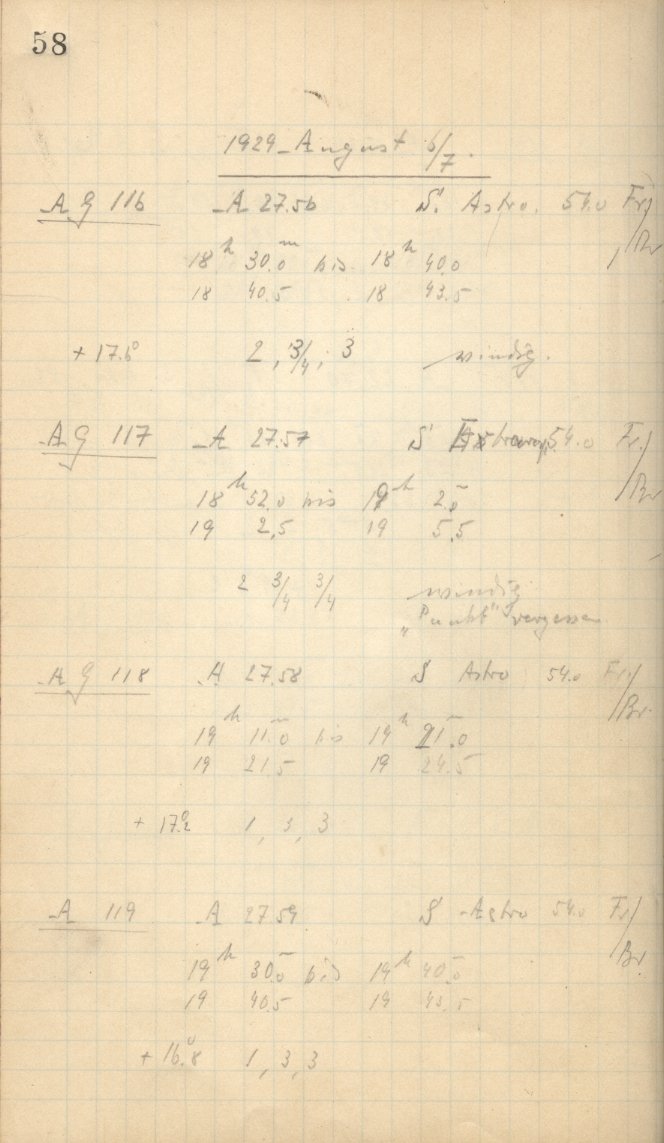 58
1929 August 6/7.
AG 116 A 27.56 S. Astro. 54.0 Fr/Br
18h 30.0m bis 18h 40.0
18 40.5 18 43.5
+ 17.6° 2, 3/4, 3 windig.
AG 117 A 27.57 S 54.0 Fr./Br
18h 52.0 bis 19h 2.0m
19 2.5 19 5.5
2 3/4 3/4 windig
„Punkt" vergessen
AG 118 A 27.58 S Astro 54.0 Fr/Br.
19h 11.0m bis 19h 21.0m
19 21.5 19 24.5
+ 17.2° 1, 3, 3
A 119 A 27.59 S Astro 54.0 Fr/Br
19h 30.0m bis 19h 40.0m
19 40.5 19 43.5
+ 16.8° 1, 3, 3